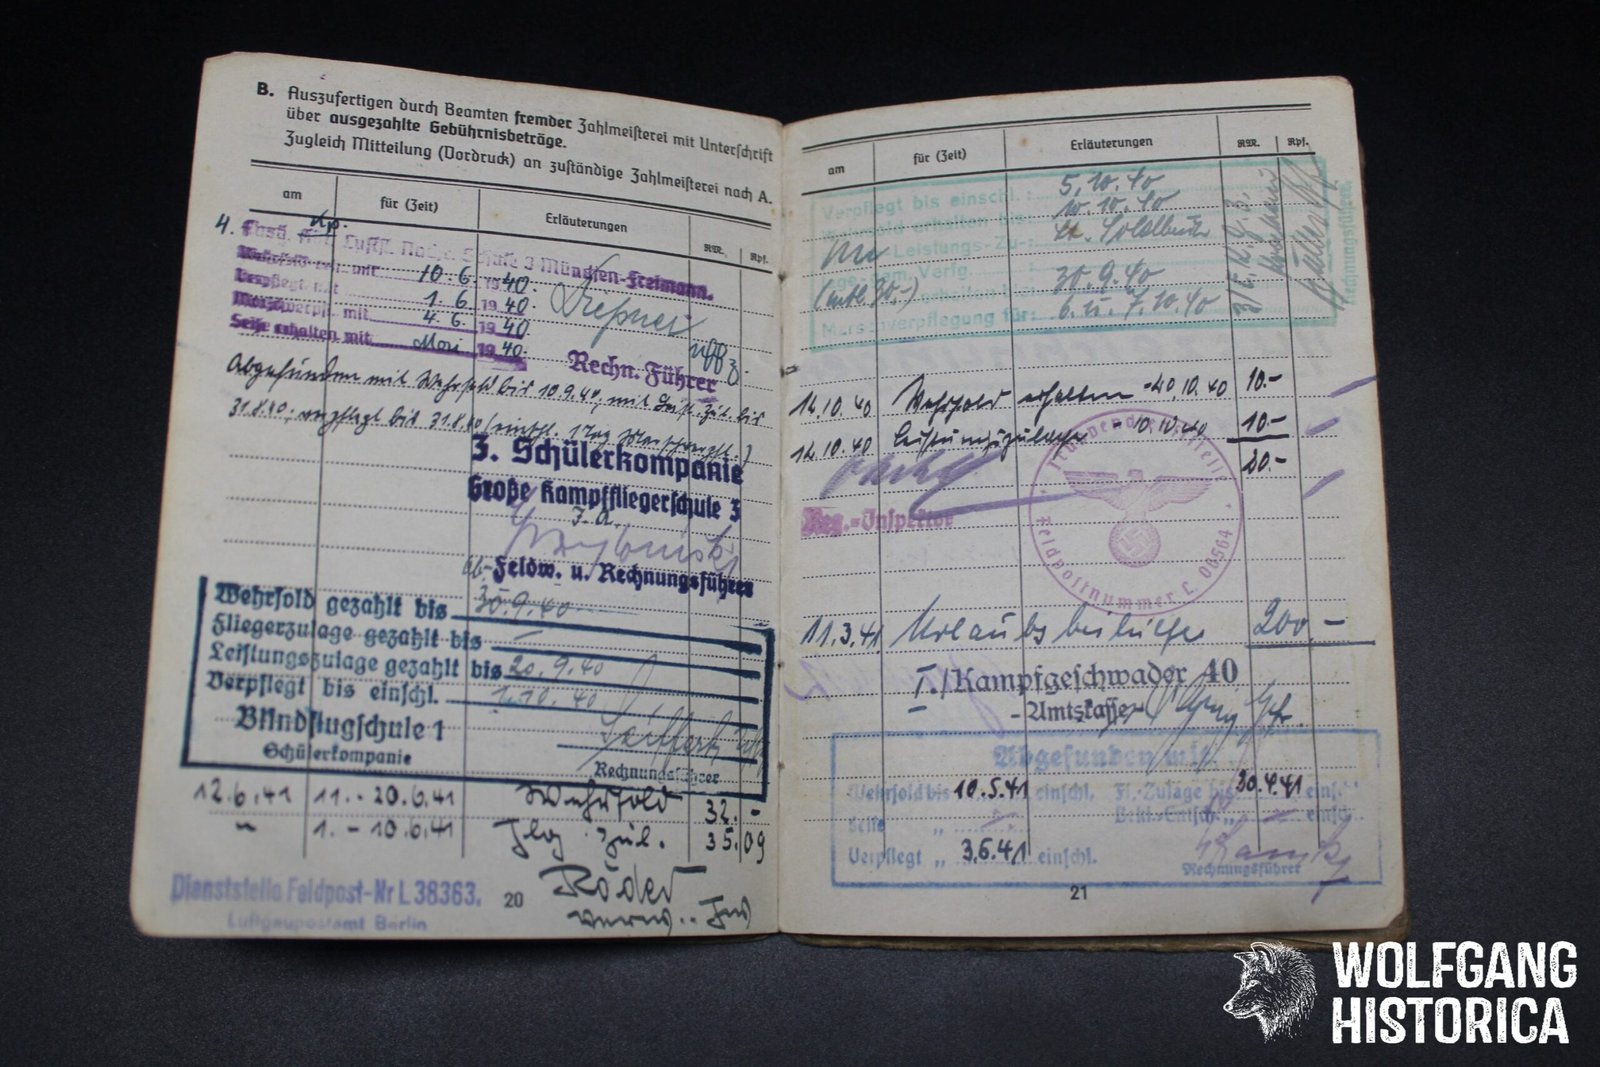 B. Auszufertigen durch Beamten fremder Zahlmeisterei mit Unterschrift
über ausgezahlte Gebührnisbeträge.
Zugleich Mitteilung (Vordruck) an zuständige Zahlmeisterei nach A.
am für (Zeit) Erläuterungen RM. Rpf.
4. Kp. Schule 3 München-Freimann.
mit 10.6. 1940.
Verpflegt mit 1.6. 1940.
Marschverpfl. mit 4.6. 1940
Seife erhalten mit Mai 1940.
Uffz.
Rechn. Führer
Abgefunden mit Wehrsold bis 10.9.40, mit
31.8.40, verpflegt bis 31.8.40 (einschl. 1 Tag Marschverpfl.)
3. Schülerkompanie
Große Kampffliegerschule 3
J.A.
Feldw. u. Rechnungsführer
Wehrsold gezahlt bis 30.9.40
Fliegerzulage gezahlt bis —
Leistungszulage gezahlt bis 20.9.40
Verpflegt bis einschl. 1.10.40
Blindflugschule 1
Schülerkompanie
Seiffert
Rechnungsführer
12.6.41 11.-20.6.41 Wehrsold 32.-
" 1.-10.6.41 Flg. Zul. 35.09
Röder
Dienststelle Feldpost-Nr L 38363.
Luftgaupostamt Berlin
20
am für (Zeit) Erläuterungen RM. Rpf.
Verpflegt bis einschl.: 5.10.40
Wehrsold erhalten bis: 10.10.40
Leistungs-Zu-: lt. Soldbuch
lage gem. Verfg
erhalten bis: 30.9.40
Marschverpflegung für: 6. u. 7.10.40
Rechnungsführer
14.10.40 Wehrsold erhalten -20.10.40 10.-
14.10.40 Leistungszulage 10.10.40 10.-
20.-
Reg.-Inspektor
Feldpostnummer L 00564
11.3.41 Urlaubsbeihilfe 200.-
I./Kampfgeschwader 40
- Amtskasse -
Abgefunden mit
Wehrsold bis 10.5.41 einschl. Fl. Zulage bis 30.4.41 einschl.
Seife "
Bekl.-Entsch. " einschl.
Verpflegt " 3.6.41 einschl.
Rechnungsführer
21
WOLFGANG
HISTORICA